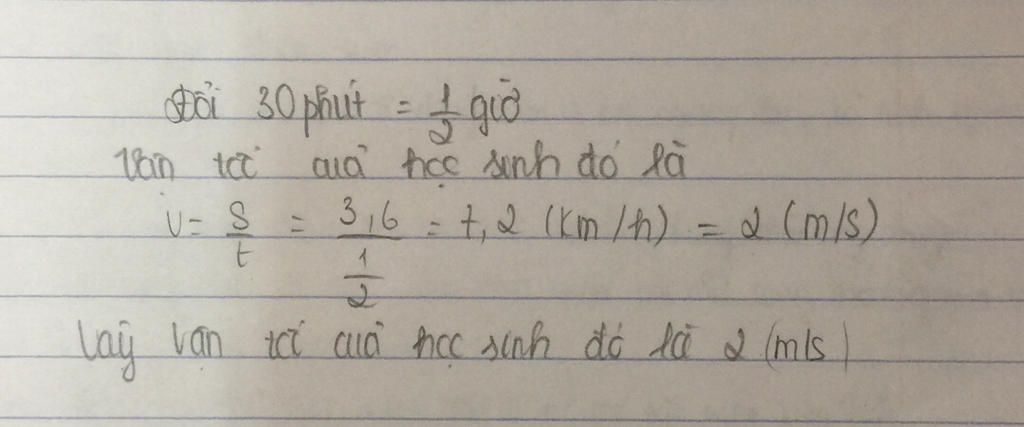 Đổi 30 phút = 1/2 giờ
Vận tốc của học sinh đó là
v = S/t = 3,6/(1/2) = 7,2 (km/h) = 2 (m/s)
Vậy vận tốc của học sinh đó là 2 (m/s)